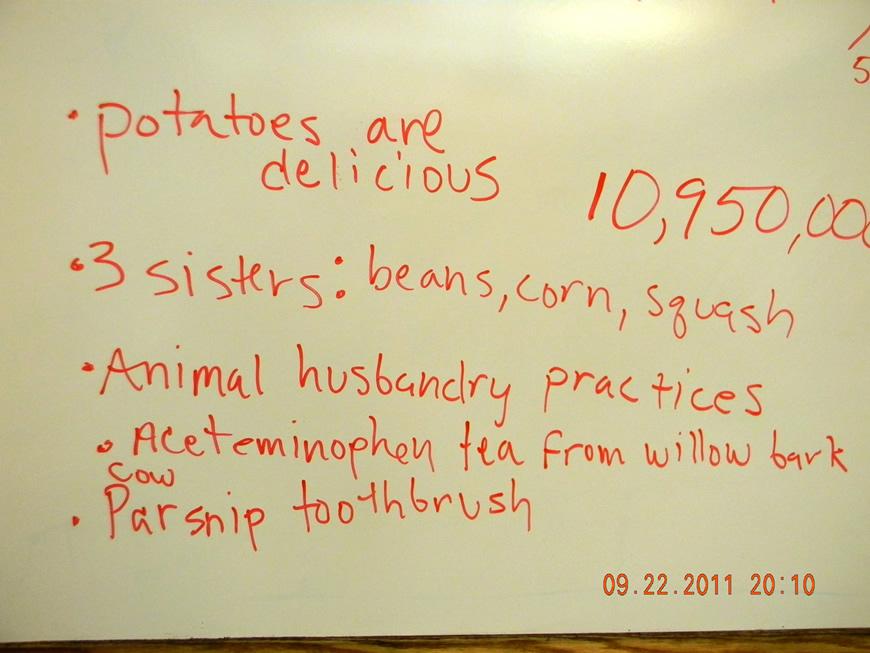 • potatoes are
delicious
10,950,00
• 3 sisters: beans, corn, squash
• Animal husbandry practices
• Aceteminophen tea from willow bark
cow
• Parsnip toothbrush
09.22.2011 20:10
5